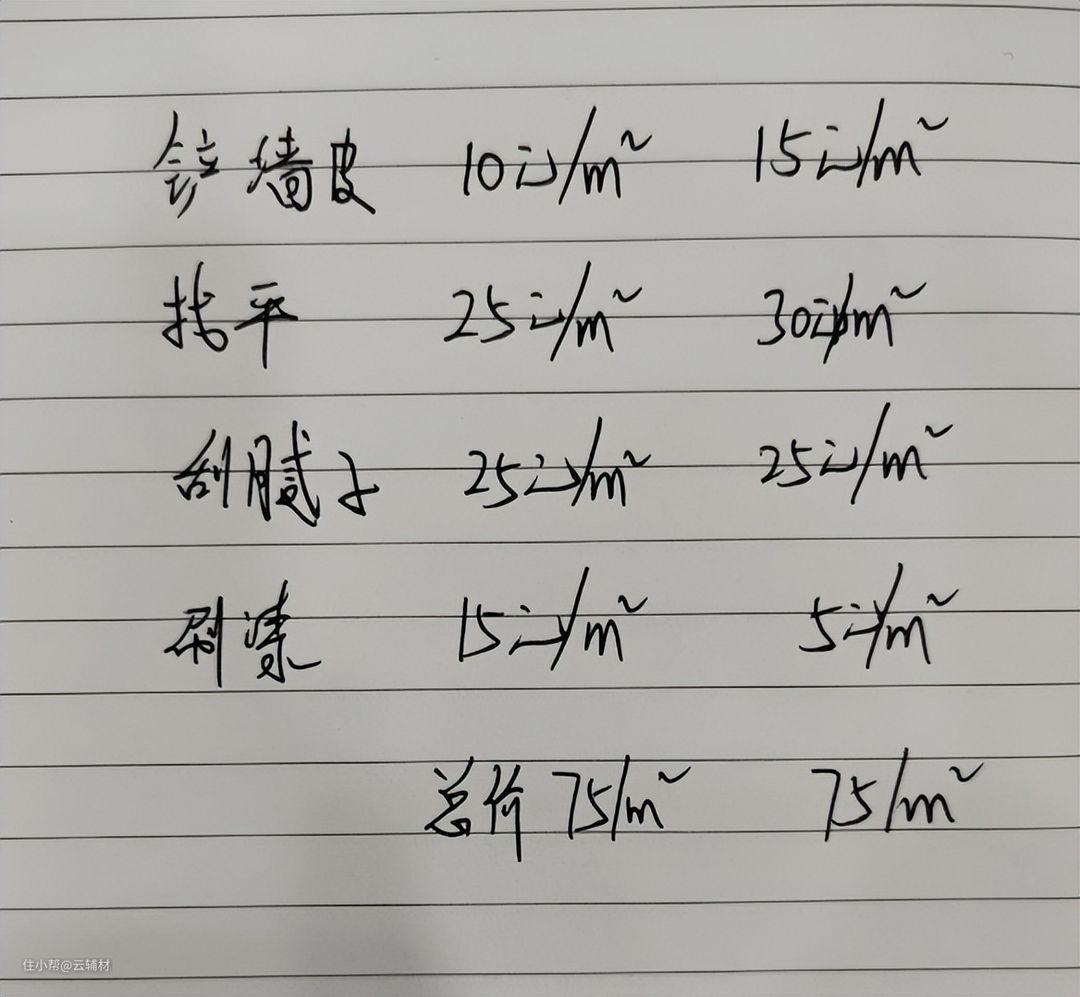 铲墙皮 10元/m² 15元/m²
找平 25元/m² 30元/m²
刮腻子 25元/m² 25元/m²
刷漆 15元/m² 5元/m²
总价 75/m² 75/m²
住小帮@云辅材